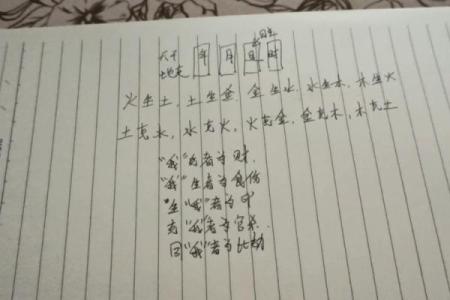 天干 年 月 日 时
地支
火生土，土生金，金生水，水生木，木生火
土克水，水克火，火克金，金克木，木克土
"我"克者为财，
"我"生者为食伤
"生""我"者为印
克"我"者为官杀
同"我"者为比劫